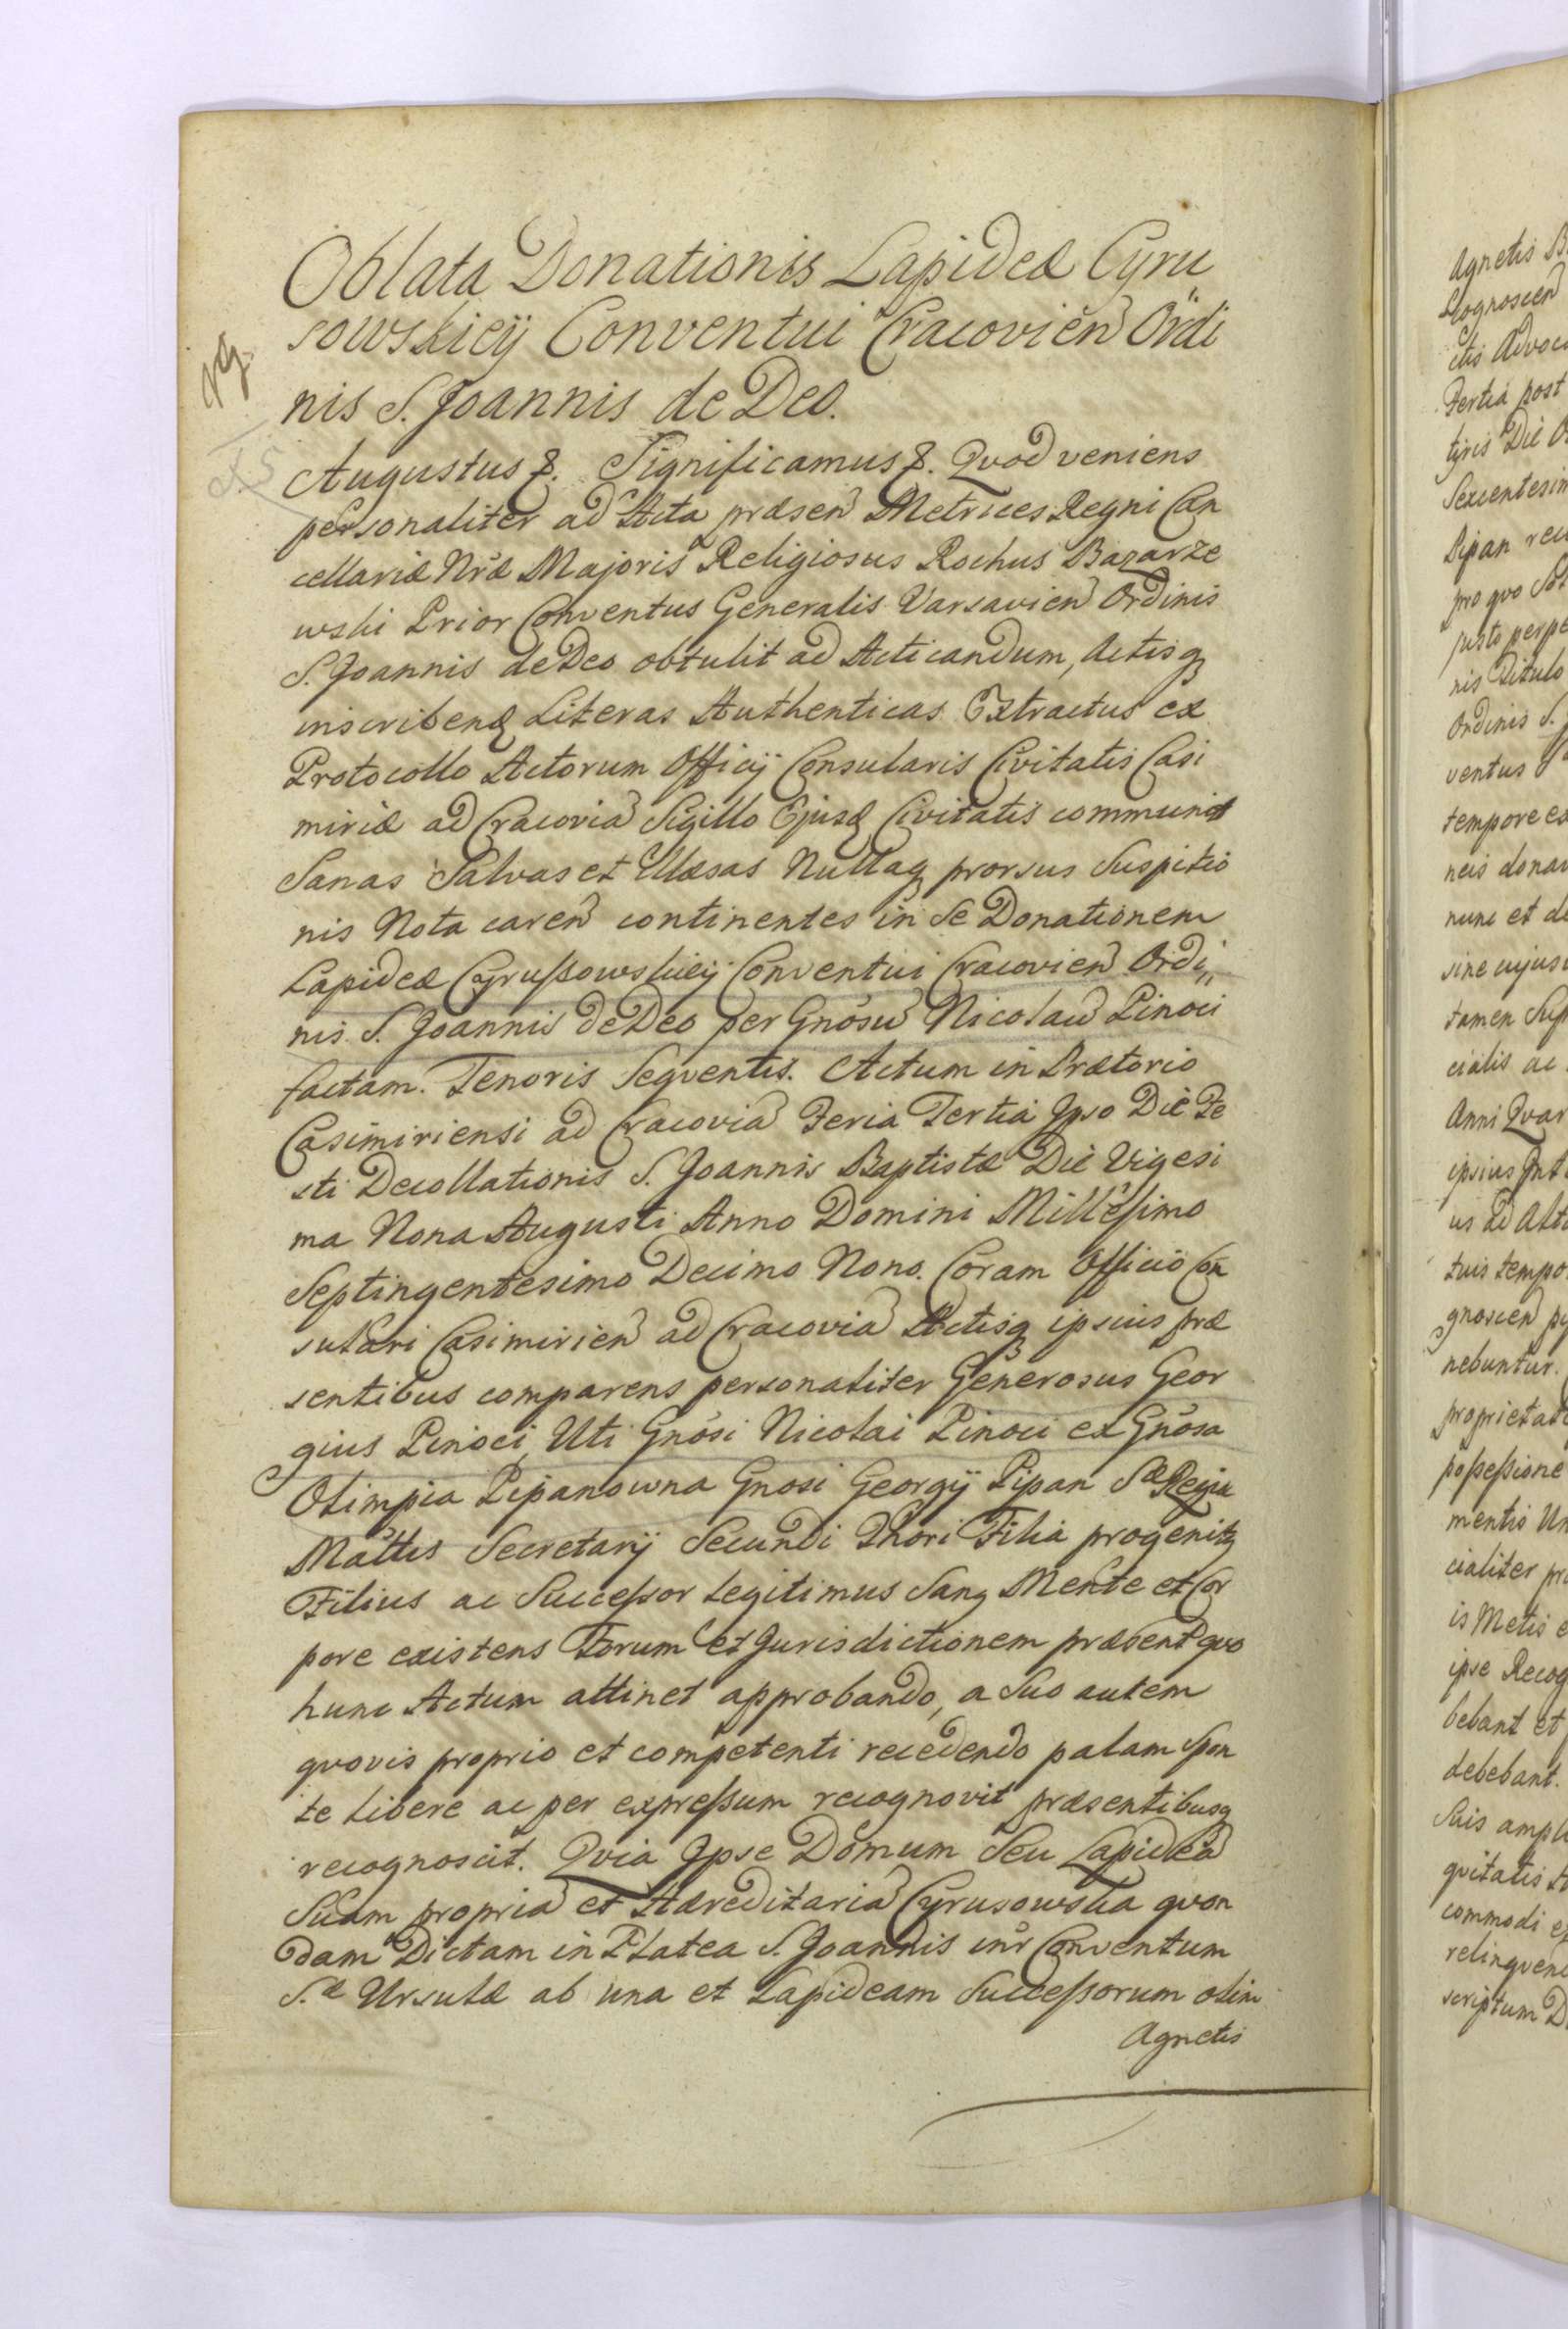 Oblata Donationis Lapideæ Cyru
sowskiey Conventui Cracovien̄ Ordi
nis S. Joannis de Deo.
Augustus &. Significamus &. Quod veniens
personaliter ad Acta præsen̄ Metrices Regni Can
cellariæ Nr̄æ Majoris Religiosus Rochus Bazarze
wski Prior Conventus Generalis Varsavien̄ Ordinis
S. Joannis de Deo obtulit ad Acticandum, Actisq
inscribend Literas Authenticas Extractus ex
Protocollo Actorum Officij Consularis Civitatis Casi
miriæ ad Cracoviā Sigillo Ejusd Civitatis communit
Sanas Salvas et Illæsas Nullaq prorsus Suspitio
nis Nota caren̄ continentes in Se Donationem
Lapideæ Cyrussowskiey Conventui Cracovien̄ Ordi„
nis S. Joannis de Deo per Gnōsū Nicolaū Pinoci
factam. Tenoris Seqventis. Actum in Prætorio
Casimiriensi ad Cracoviā Feria Tertia Ipso Die Fe
sti Decollationis S. Joannis Baptistæ Die Vigesi
ma Nona Augusti Anno Domini Millesimo
Septingentesimo Decimo Nono. Coram Officio Con
sulari Casimirien̄ ad Cracoviā Actisq ipsius præ
sentibus comparens personaliter Generosus Geor
gius Pinoci, Uti Gnōsi Nicolai Pinoci ex Gnōsa
Olimpia Pipanowna Gnosi Georgij Pipan Sæ Regiæ
Mattis Secretarij Secundi Thori Filia progenitq
Filius ac Successor Legitimus Sanq Mente et Cor
pore existens Forum et Jurisdictionem præsent qvo
hunc Actum attinet approbando, a Suo autem
qvovis proprio et competenti recedendo palam Spon
te Libere ac per expressum recognovit præsentibusq
recognoscit. Qvia Ipse Domum Seu Lapideā
Suam propriā et Hæreditariā Cyrusowska qvon
dam Dictam in Platea S. Joannis inr̄ Conventum
S.æ Ursulæ ab una et Lapideam Successorum olim
Agnetis